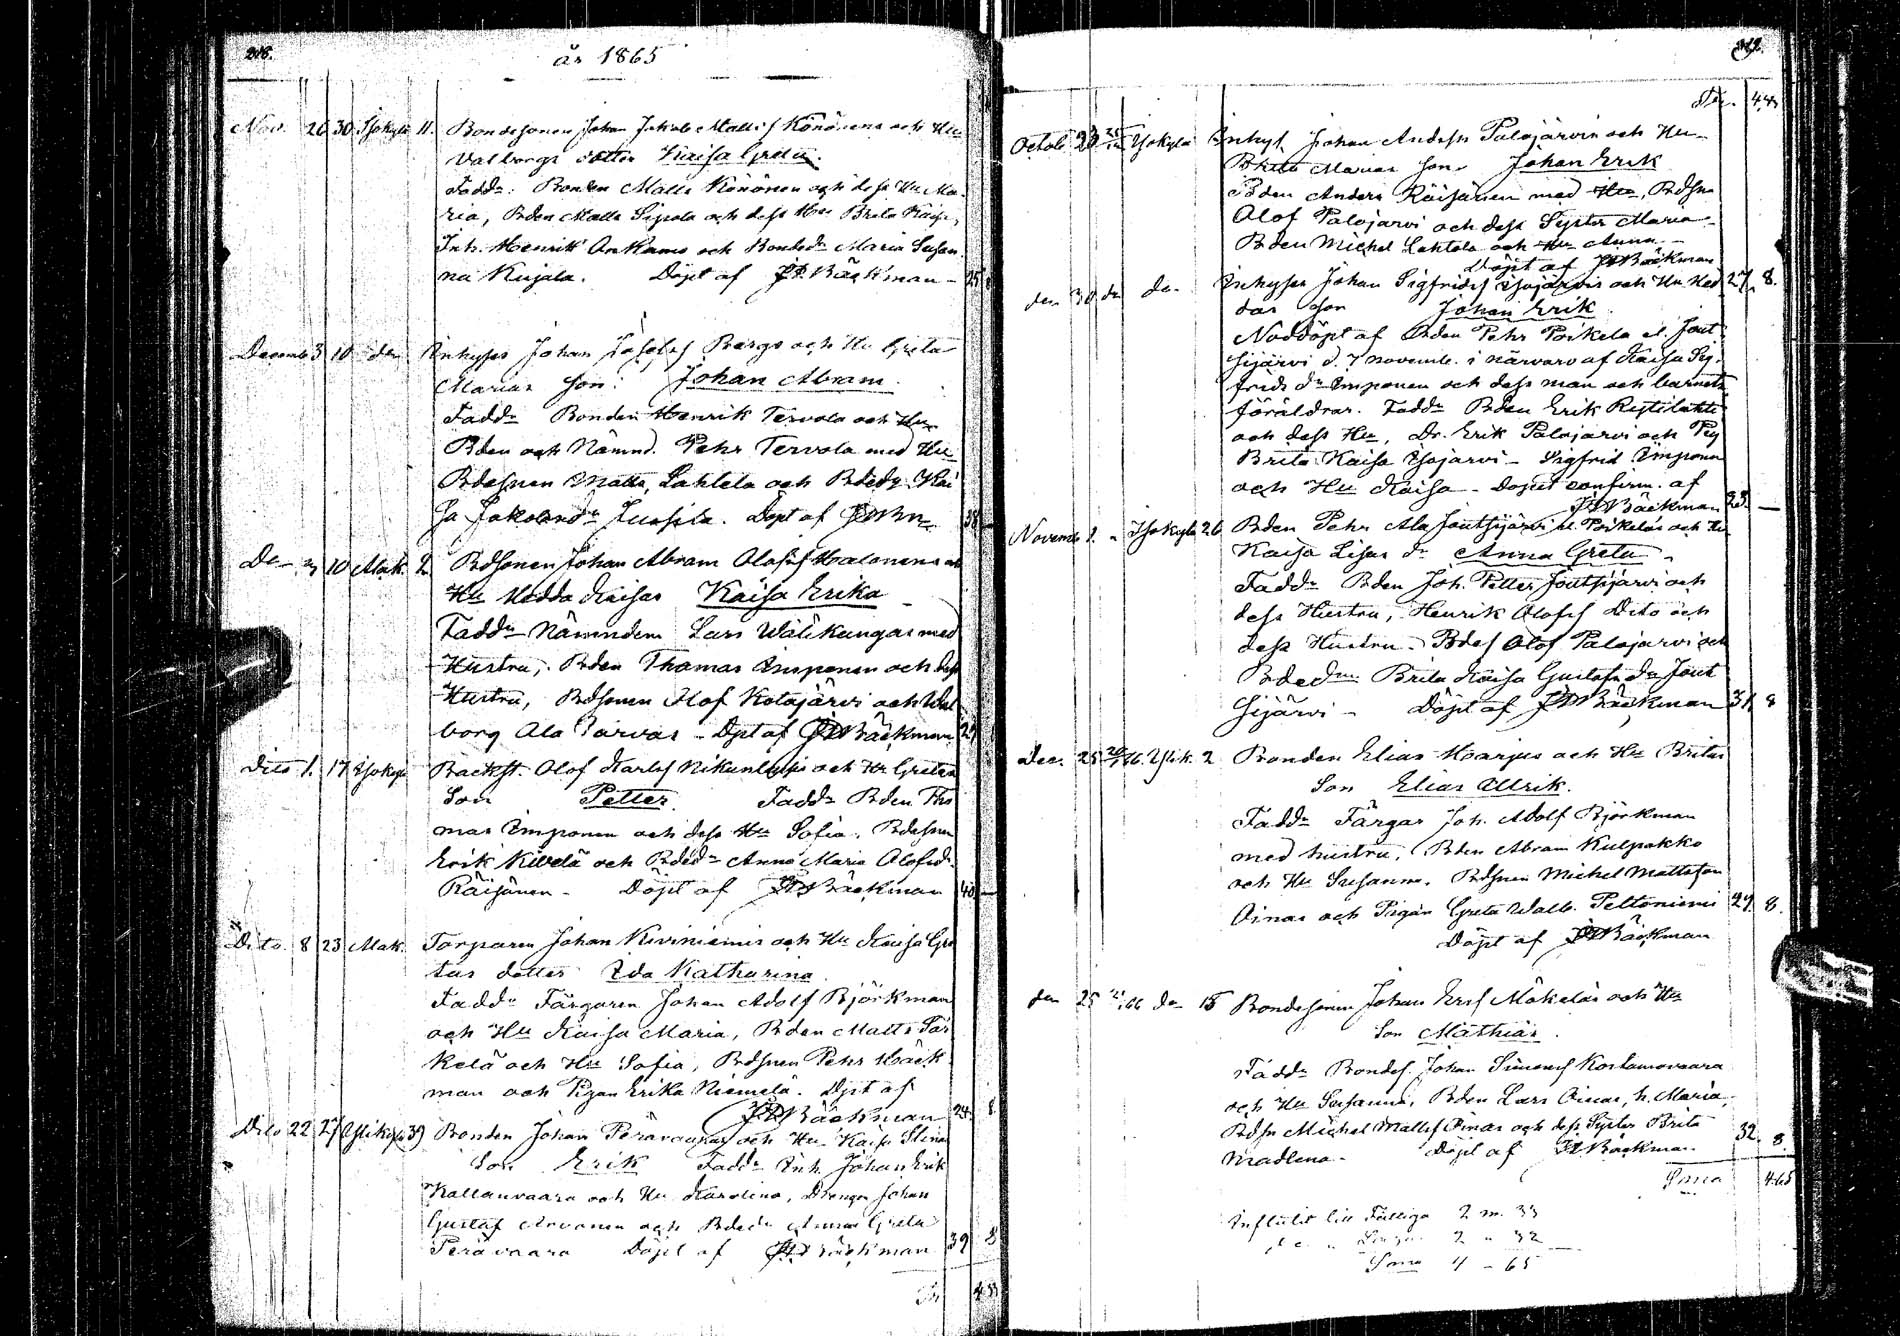 208.
år 1865
Nov. 26 30 Isokylä 11. Bondesonen Johan Jakob Mattsf Könönens och Hu
Valborgs dotter Kaisa Greta.
Fadd: Bonden Matts Könönen och dess Hu Ma
ria, Bden Matts Sipola och dess Hu Brita Kaisa,
Inh. Henrik Ankamo och Bonded Maria Susan
na Kujala. Döpt af Bäckman 25
Decemb 3 10 do Inhyses Johan Josefsf Bergs och Hu Greta
Marias Son: Johan Abram.
Fadd Bonden Henrik Tervola och Hu
Bden och Nämnd. Pehr Tervola med Hu
Bdesonen Matts Lahtela och Bded Kai
sa Jakobsd Luosila. Döpt af 38
Do 3 10 Mak. 2 Bdsonen Johan Abram Olofsf Halonens och
Hu Hedda Kaisas Kaisa Erika
Fadd Nämndem Lars Wälikangas med
Hustru, Bden Thomas Imponen och dess
Hustru, Bdsonen Olof Kotajärvi och Wal
borg Ala Tarvas - Dpt af Bäckman 29
Dito 1. 17 Isokyla Backst. Olof Karlsf Nikunlassi och Hu Gretas
Son Petter. Fadd Bden Tho
mas Imponen och dess Hu Sofia. Bdesonen
Erik Kivelä och Bded Anna Maria Olofsd.
Räisänen - Döpt af Bäckman 40 -
Dito 8 23 Mak. Torparen Johan Kiviniemis och Hu Kaisa Gre
tas dotter Ida Katharina.
Fadd Färgaren Johan Adolf Björkman
och Hu Kaisa Maria, Bden Matts Sär
kelä och Hu Sofia, Bdsonen Pehr Häck
man och Pigan Erika Niemelä. Dpt af
Bäckman 24. 8
Dito 22 27 Ylikylä 39 Bonden Johan Perävaaras och Hu Kaisa Stinas
Son Erik Fadd Inh. Johan Erik
Kallanvaara och Hu Karolina, Drengen Johan
Gustaf Arvonen och Bded Anna Greta
Perävaara Döpt af Bäckman 39 8
Tr. 4.33
Tr. 4.33
Octob 29 Isokylä Inhys. Johan Andersf Palojärvis och Hu
Brita Marias Son Johan Erik
Bden Anders Räisänen med Hu, Bdson
Olof Palojarvi och dess Syster Maria
Bden Michel Lahtela och Hu Anna -
Döpt af Bäckman 27. 8.
den 30 do do Inhyses Johan Sigfridsf Isojärvis och Hu Hed
das Son Johan Erik
Noddöpt af Bden Pehr Poikela el. Jout
sijärvi d. 7 novemb. i närvaro af Kaisa Sig
frids dr Imponen och dess man och barnets
föräldrar. Fadd Bden Erik Ristilahti
och dess Hu, Dr. Erik Palojarvi och Pig
Brita Kaisa Isojarvi - Sigfrid Imponen
och Hu Kaisa - Dopet confirm. af
Bäckman 23. -
Novemb 1. Isokylä 26 Bden Pehr Ala Joutsijärvi el. Poikelas och Hu
Kaisa Lisas dr Anna Greta
Fadd Bden Joh. Petter Joutsijärvi och
dess Hustru, Henrik Olofsf Dito och
dess Hustru. Bdes Olof Palojarvi och
Bded Brita Kaisa Gustafsdr Jout
sijärvi - Döpt af Bäckman 31 8
Dec. 25 Ylik. 2 Bonden Elias Harjus och Hu Britas
Son Elias Ulrik.
Fadd Färgar Joh. Adolf Björkman
med hustru, Bden Abram Kulpakko
och Hu Susanna. Bdsonen Michel Mattsson
Oinas och Pigan Greta Walb. Peltoniemi 29. 8.
Döpt af Bäckman
den 25 do 15 Bondesonen Johan Ersf Mäkeläs och Hu
Son Mathias.
Fadd Bondes. Johan Simonsf Kostamovaara
och Hu Susanna, Bden Lars Oinas, h. Maria,
Bdsn Michel Mattsf Oinas och dess Syster Brita
Madlena - Döpt af Bäckman 32. 8.
Suma 4.65
Influtit till Fattiga 2 m. 33
2 " 32
Suma 4 - 65